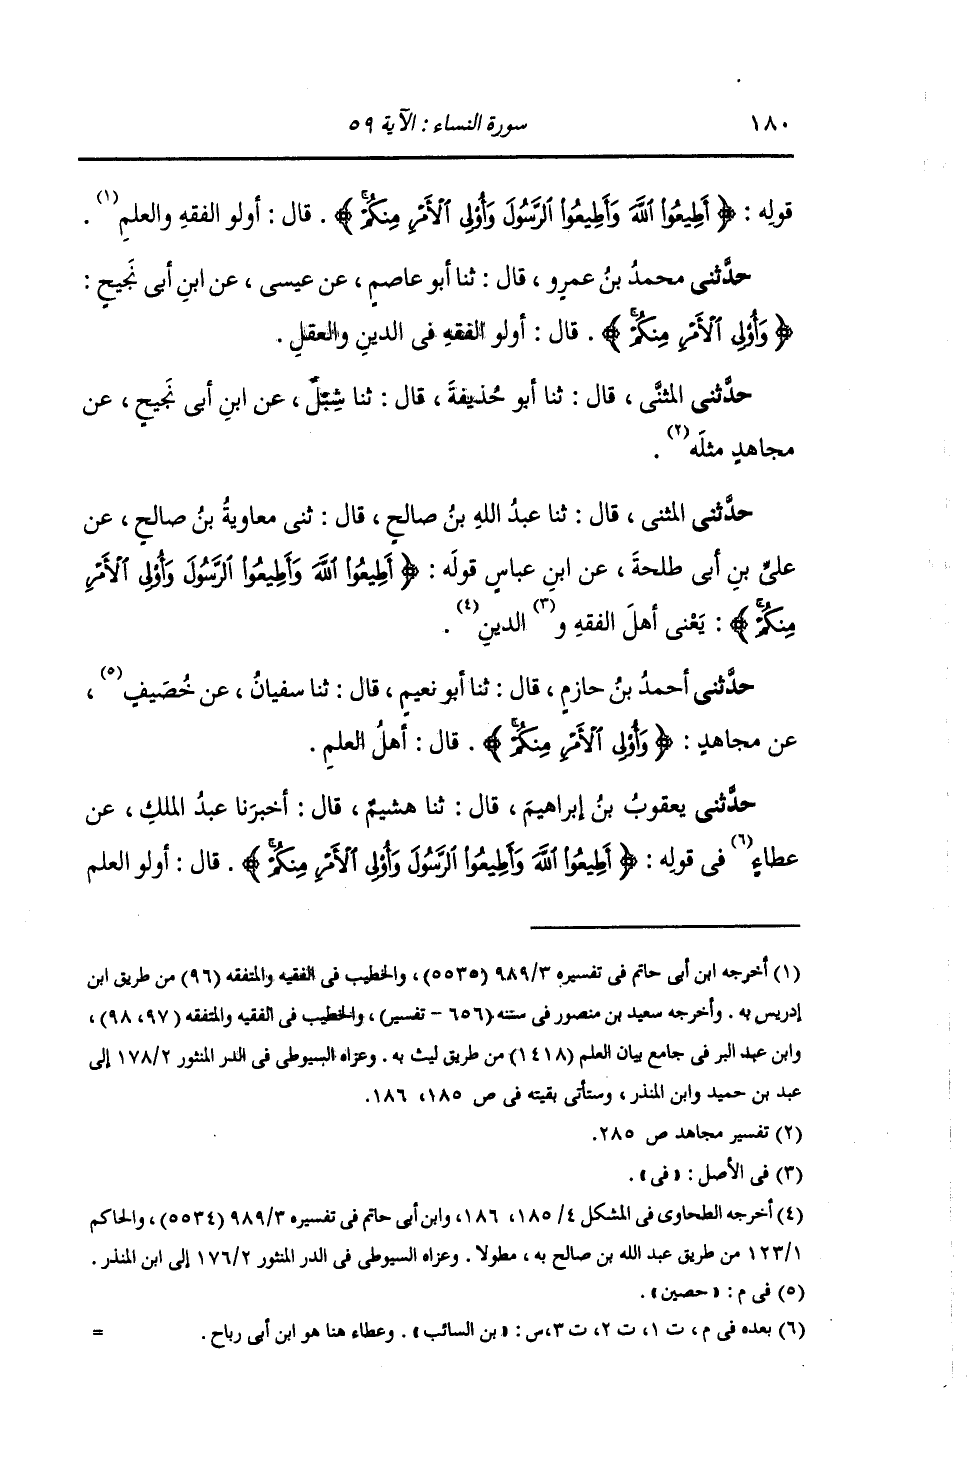 ١٨٠ سورة النساء : الآية ٥٩
قولِه : ﴿ أَطِيعُوا۟ ٱللَّهَ وَأَطِيعُوا۟ ٱلرَّسُولَ وَأُو۟لِى ٱلْأَمْرِ مِنكُمْ ﴾ . قال : أولو الفقهِ والعلمِ(١) .
حدَّثنى محمدُ بنُ عمرٍو ، قال : ثنا أبو عاصمٍ ، عن عيسى ، عن ابنِ أبى نَجيحٍ :
﴿ وَأُو۟لِى ٱلْأَمْرِ مِنكُمْ ﴾ . قال : أولو الفقهِ فى الدينِ والعقلِ .
حدَّثنى المثنَّى ، قال : ثنا أبو حُذيفةَ ، قال : ثنا شِبْلٌ ، عن ابنِ أبى نَجيحٍ ، عن
مجاهدٍ مثلَه(٢) .
حدَّثنى المثنى ، قال : ثنا عبدُ اللهِ بنُ صالحٍ ، قال : ثنى معاويةُ بنُ صالحٍ ، عن
علىِّ بنِ أبى طلحةَ ، عن ابنِ عباسٍ قولَه : ﴿ أَطِيعُوا۟ ٱللَّهَ وَأَطِيعُوا۟ ٱلرَّسُولَ وَأُو۟لِى ٱلْأَمْرِ
مِنكُمْ ﴾ : يَعْنى أهلَ الفقهِ و(٣) الدينِ(٤) .
حدَّثنى أحمدُ بنُ حازمٍ ، قال : ثنا أبو نعيمٍ ، قال : ثنا سفيانُ ، عن خُصَيفٍ(٥) ،
عن مجاهدٍ : ﴿ وَأُو۟لِى ٱلْأَمْرِ مِنكُمْ ﴾ . قال : أهلُ العلمِ .
حدَّثنى يعقوبُ بنُ إبراهيمَ ، قال : ثنا هشيمٌ ، قال : أخبرَنا عبدُ الملكِ ، عن
عطاءٍ(٦) فى قولِه : ﴿ أَطِيعُوا۟ ٱللَّهَ وَأَطِيعُوا۟ ٱلرَّسُولَ وَأُو۟لِى ٱلْأَمْرِ مِنكُمْ ﴾ . قال : أولو العلم
(١) أخرجه ابن أبى حاتم فى تفسيره ٩٨٩/٣ (٥٥٣٥) ، والخطيب فى الفقيه والمتفقه (٩٦) من طريق ابن
إدريس به . وأخرجه سعيد بن منصور فى سننه (٦٥٦ - تفسير) ، والخطيب فى الفقيه والمتفقه (٩٧، ٩٨) ،
وابن عبد البر فى جامع بيان العلم (١٤١٨) من طريق ليث به . وعزاه السيوطى فى الدر المنثور ١٧٨/٢ إلى
عبد بن حميد وابن المنذر ، وستأتى بقيته فى ص ١٨٥، ١٨٦.
(٢) تفسير مجاهد ص ٢٨٥.
(٣) فى الأصل : « فى » .
(٤) أخرجه الطحاوى فى المشكل ٤/ ١٨٥، ١٨٦، وابن أبى حاتم فى تفسيره ٩٨٩/٣ (٥٥٣٤) ، والحاكم
١٢٣/١ من طريق عبد الله بن صالح به ، مطولا . وعزاه السيوطى فى الدر المنثور ١٧٦/٢ إلى ابن المنذر .
(٥) فى م : « حصين » .
(٦) بعده فى م ، ت ١، ت ٢، ت ٣،س : « بن السائب » . وعطاء هنا هو ابن أبى رباح . =